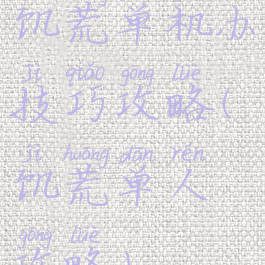 饥荒单机办
jì qiǎo gōng lüè
技巧攻略(
jī huāng dān rén
饥荒单人
gōng lüè
攻略)